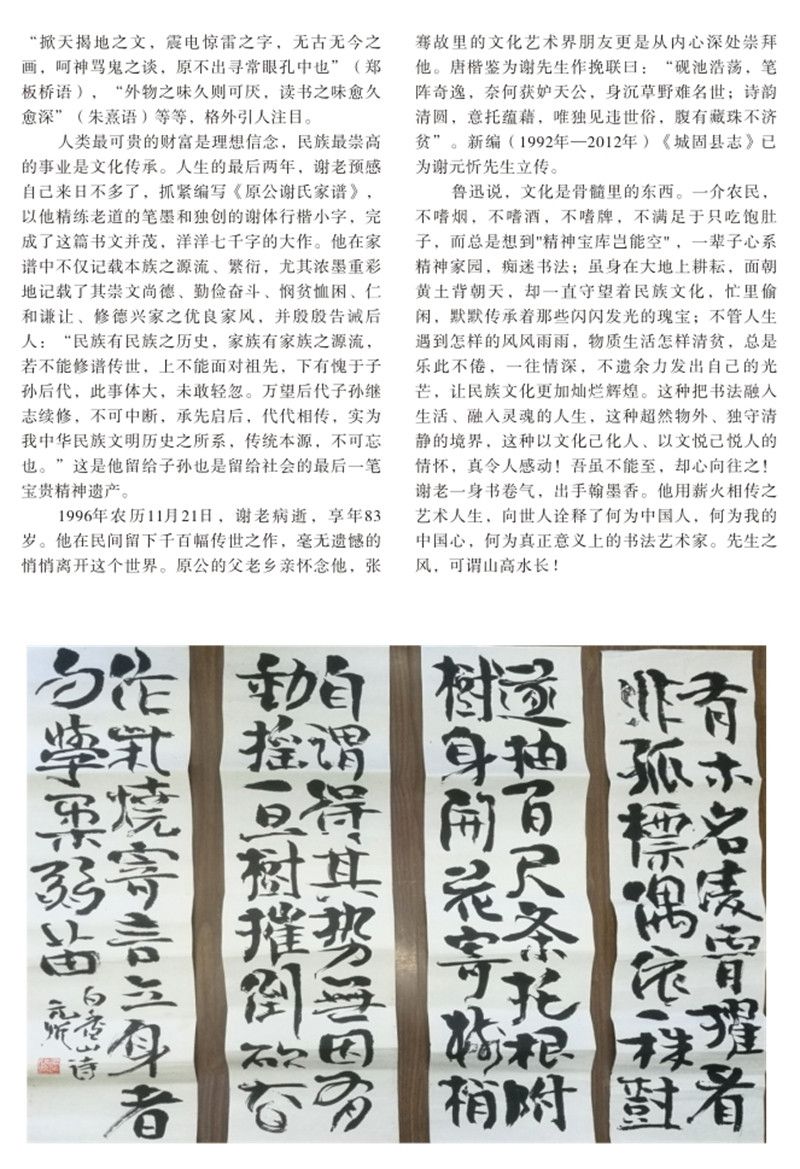 “掀天揭地之文，震电惊雷之字，无古无今之
画，呵神骂鬼之谈，原不出寻常眼孔中也”（郑
板桥语），“外物之味久则可厌，读书之味愈久
愈深”（朱熹语）等等，格外引人注目。
人类最可贵的财富是理想信念，民族最崇高
的事业是文化传承。人生的最后两年，谢老预感
自己来日不多了，抓紧编写《原公谢氏家谱》，
以他精练老道的笔墨和独创的谢体行楷小字，完
成了这篇书文并茂，洋洋七千字的大作。他在家
谱中不仅记载本族之源流、繁衍，尤其浓墨重彩
地记载了其崇文尚德、勤俭奋斗、悯贫恤困、仁
和谦让、修德兴家之优良家风，并殷殷告诫后
人：“民族有民族之历史，家族有家族之源流，
若不能修谱传世，上不能面对祖先，下有愧于子
孙后代，此事体大，未敢轻忽。万望后代子孙继
志续修，不可中断，承先启后，代代相传，实为
我中华民族文明历史之所系，传统本源，不可忘
也。”这是他留给子孙也是留给社会的最后一笔
宝贵精神遗产。
1996年农历11月21日，谢老病逝，享年83
岁。他在民间留下千百幅传世之作，毫无遗憾的
悄悄离开这个世界。原公的父老乡亲怀念他，张
骞故里的文化艺术界朋友更是从内心深处崇拜
他。唐楷鉴为谢先生作挽联曰：“砚池浩荡，笔
阵奇逸，奈何获妒天公，身沉草野难名世；诗韵
清圆，意托蕴藉，唯独见违世俗，腹有藏珠不济
贫”。新编（1992年—2012年）《城固县志》已
为谢元忻先生立传。
鲁迅说，文化是骨髓里的东西。一介农民，
不嗜烟，不嗜酒，不嗜牌，不满足于只吃饱肚
子，而总是想到"精神宝库岂能空"，一辈子心系
精神家园，痴迷书法；虽身在大地上耕耘，面朝
黄土背朝天，却一直守望着民族文化，忙里偷
闲，默默传承着那些闪闪发光的瑰宝；不管人生
遇到怎样的风风雨雨，物质生活怎样清贫，总是
乐此不倦，一往情深，不遗余力发出自己的光
芒，让民族文化更加灿烂辉煌。这种把书法融入
生活、融入灵魂的人生，这种超然物外、独守清
静的境界，这种以文化己化人、以文悦己悦人的
情怀，真令人感动！吾虽不能至，却心向往之！
谢老一身书卷气，出手翰墨香。他用薪火相传之
艺术人生，向世人诠释了何为中国人，何为我的
中国心，何为真正意义上的书法艺术家。先生之
风，可谓山高水长！
有木名凌霄擢秀
非孤標偶依一株樹
遂抽百尺条托根附
樹身開花寄樹梢
自谓得其势無因有
動摇一旦樹摧倒
作柴燒寄言立身者
勿學柔弱苗
白香山诗
元忻